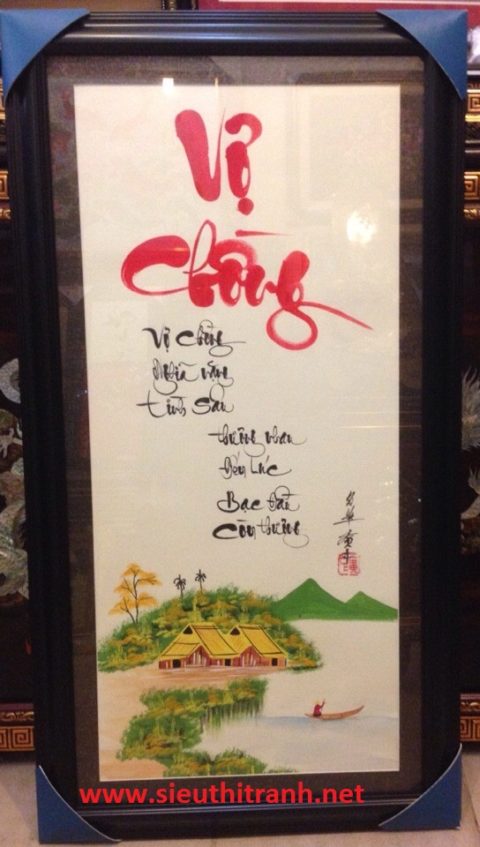 Vợ
Chồng
Vợ Chồng
Nghĩa nặng
tình sâu
thương nhau
đến lúc
Bạc đầu
Còn thương
www.sieuthitranh.net